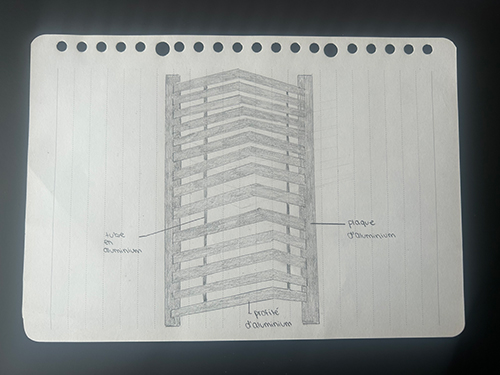 tube
en
aluminium
plaque
d'aluminium
profilé
d'aluminium